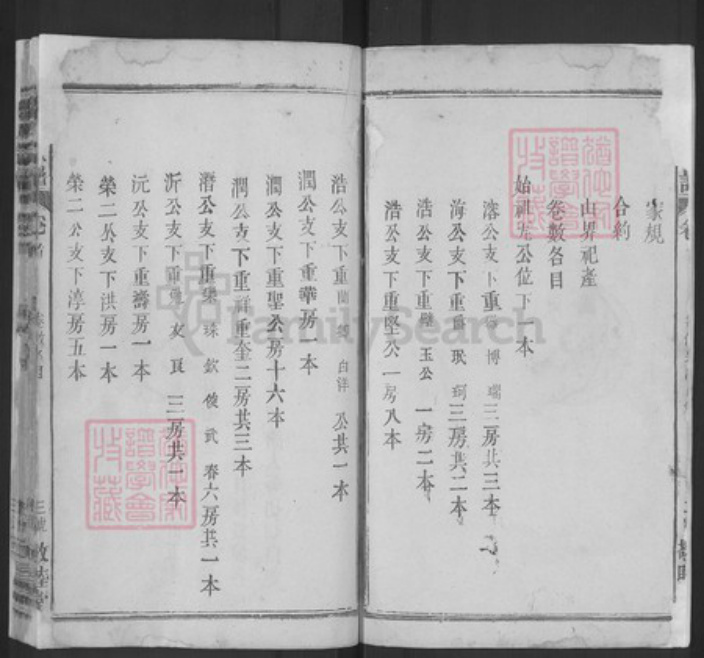 家規
合約
山界祀產
卷數各目
始祖 公位下一本
溶公支下重 博 瑞三房共三本
海公支下重 珉 珂三房共二本
浩公支下重璧 玉公一房二本
浩公支下重堅公一房八本
浩公支下重 白 公共一本
潤公支下重華房一本
潤公支下重聖公房十六本
潤公支下重祥重奎二房共三本
潛公支下重 珠 欽 俊 武 春六房共一本
沂公支下重 友 良 三房共一本
沅公支下重壽房一本
榮二公支下洪房一本
榮二公支下淳房五本
譜學會
收藏
FamilySearch